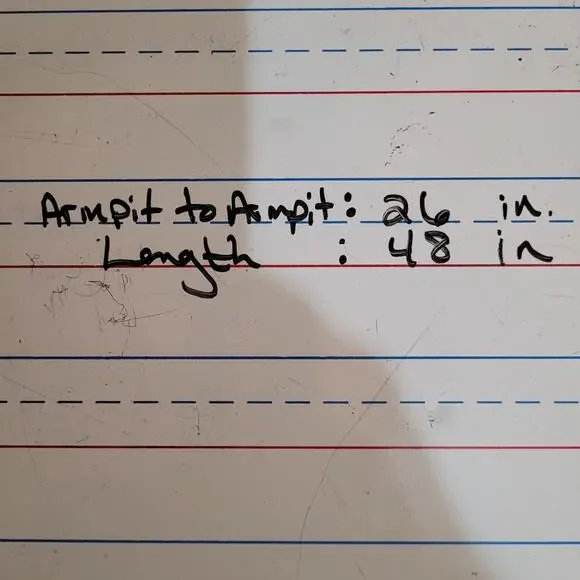 Armpit to Armpit: 26 in.
Length : 48 in